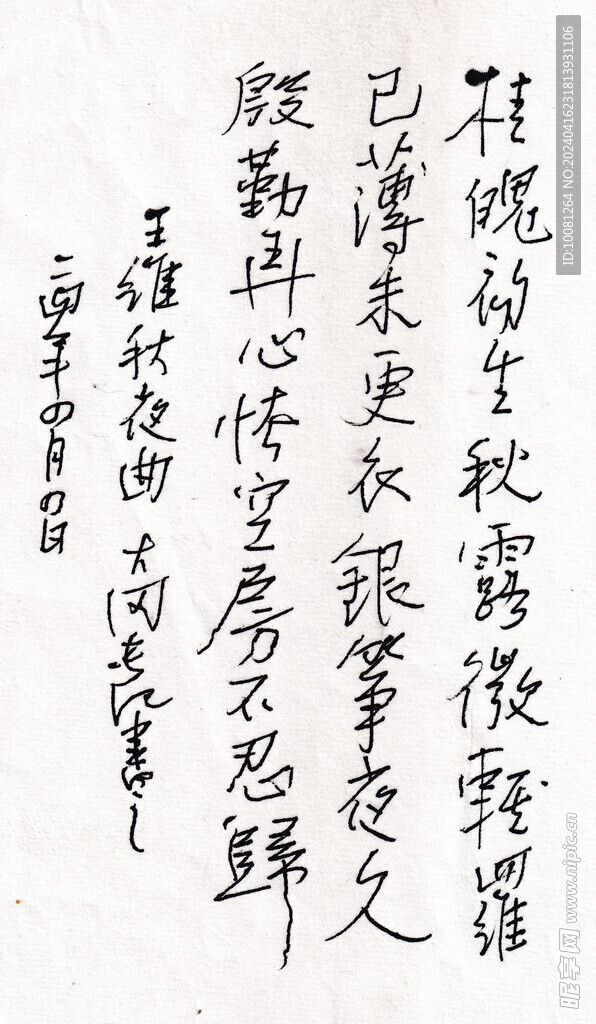 桂魄初生秋露微輕羅
已薄未更衣銀箏夜久
殷勤弄心怯空房不忍歸
王維秋夜曲 書之
二四年四月四日
ID:10081264 NO:20240416231813931106
昵享网 www.nipic.cn